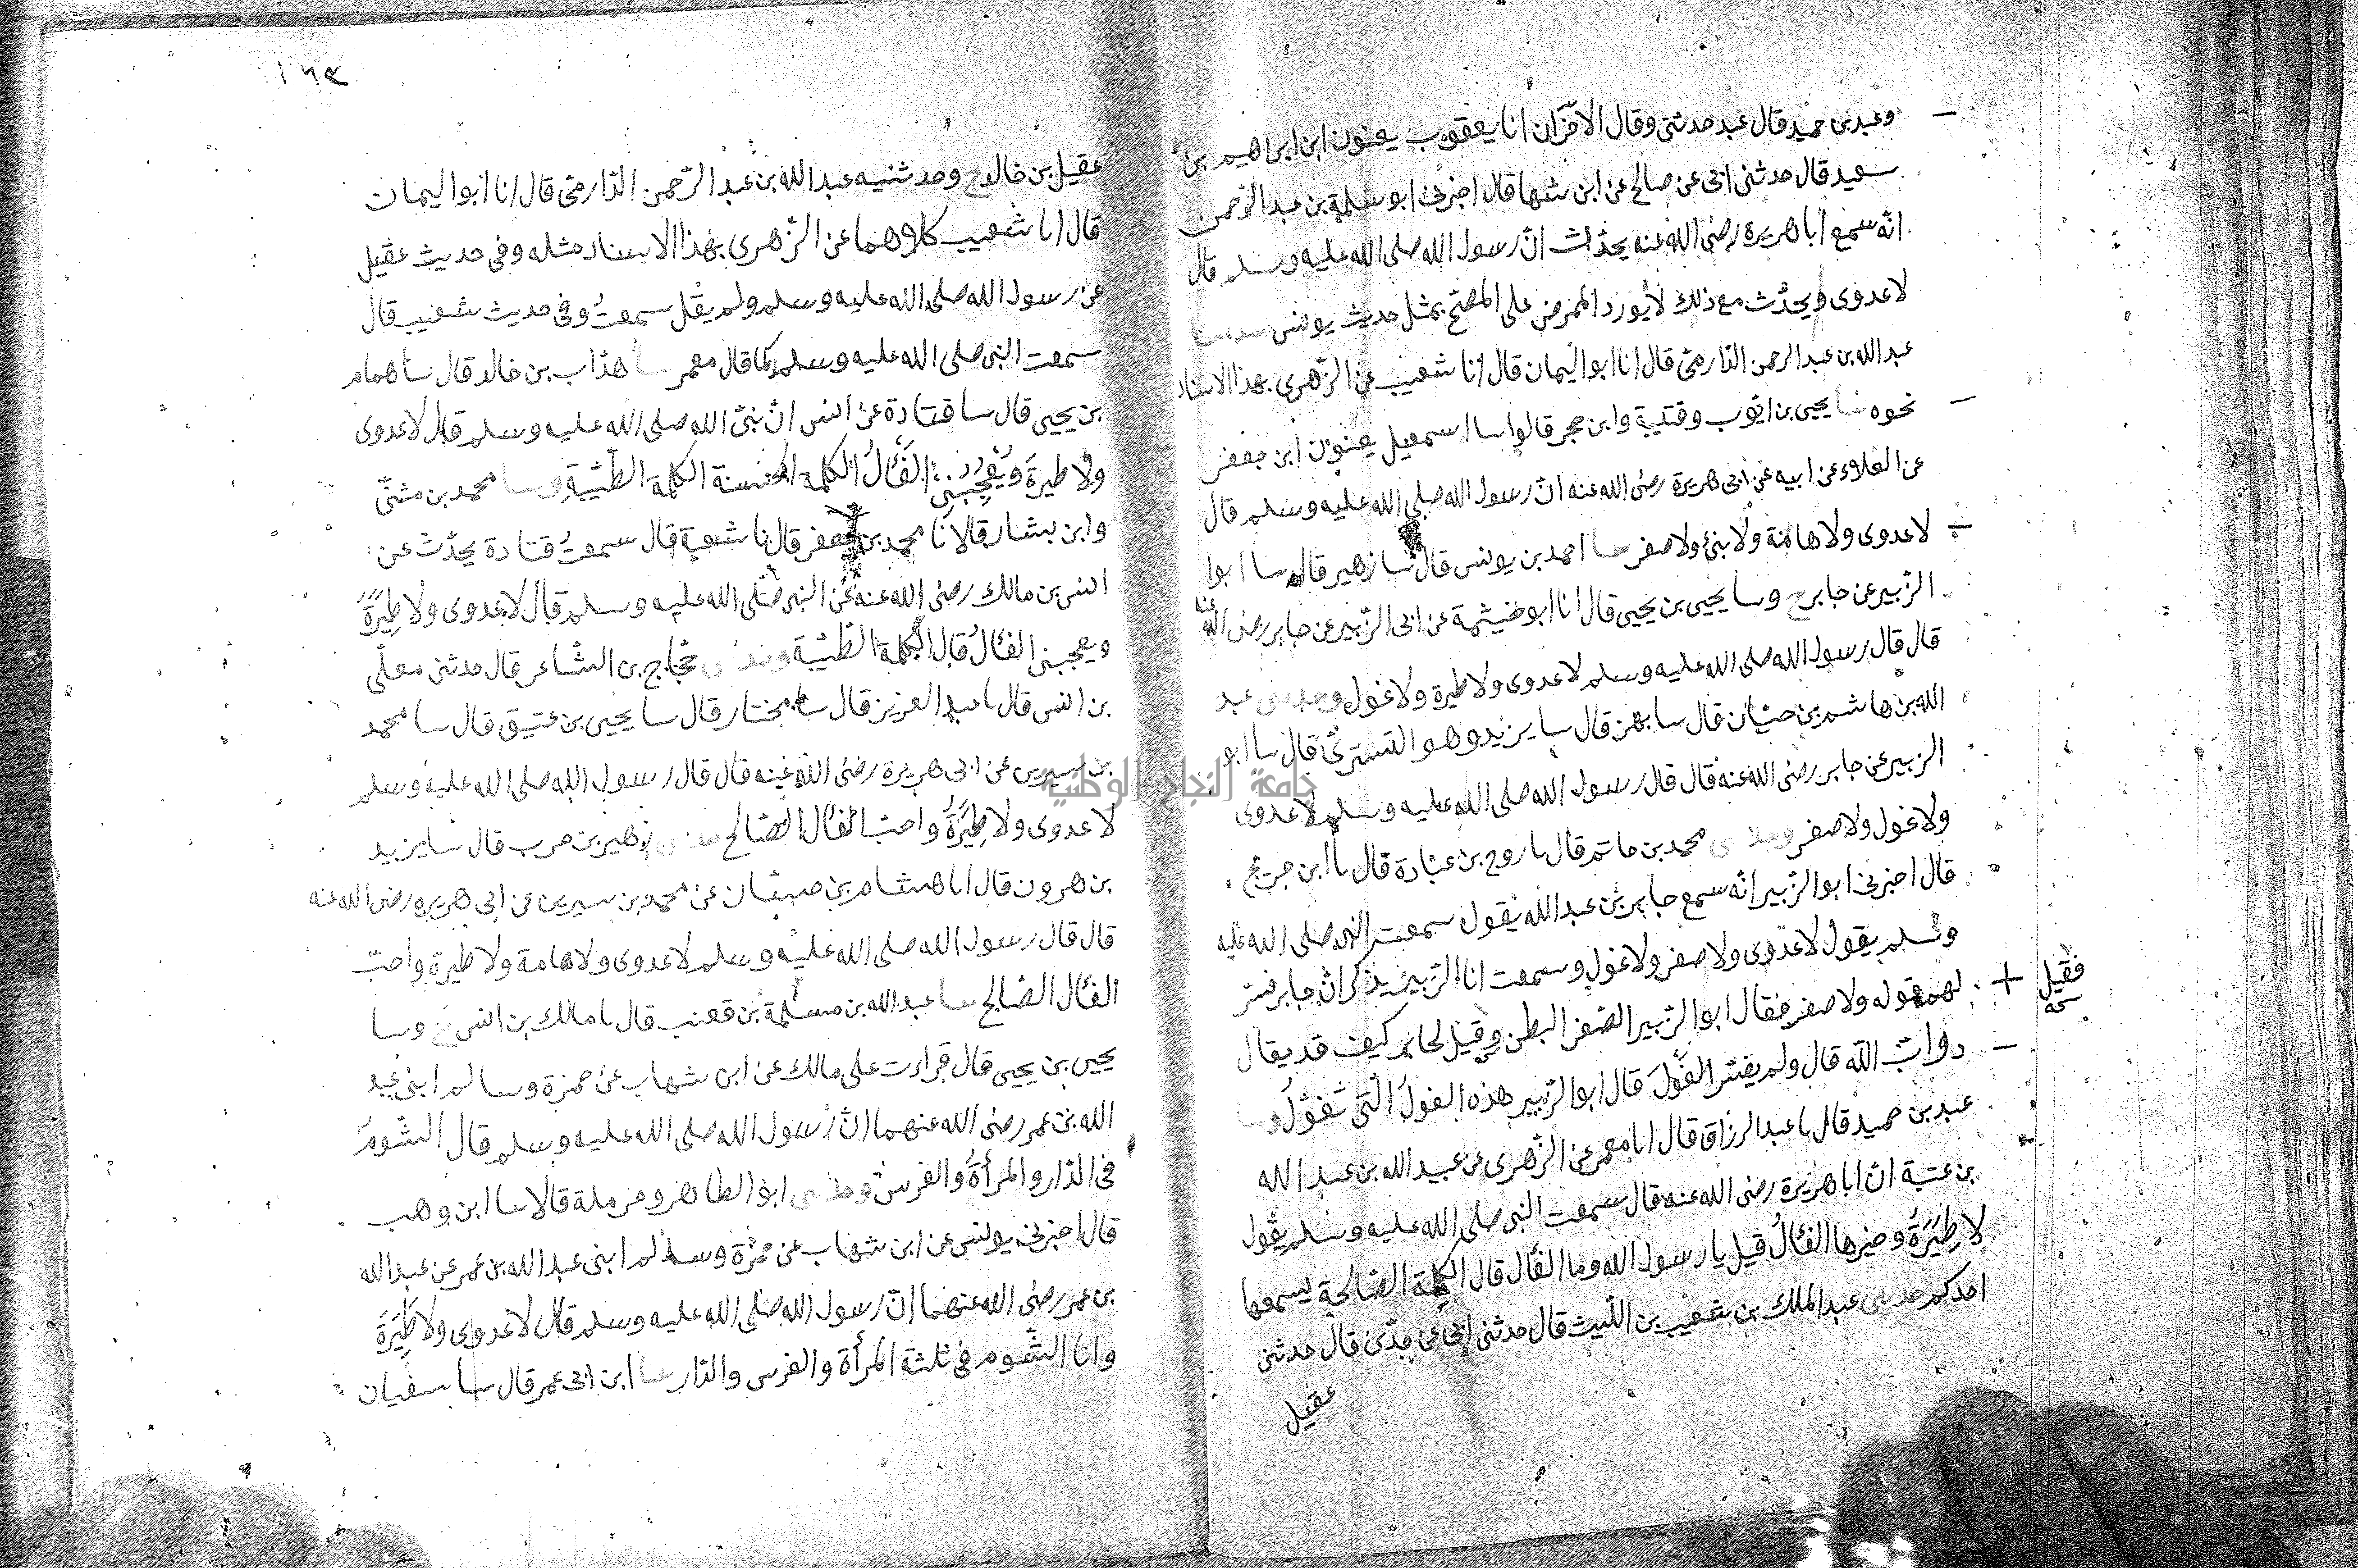 وعبد بن حميد قال عبد حدثنى وقال الآخران انا يعقوب يعنون ابن ابراهيم بن
سعيد قال حدثنى ابى عن صالح عن ابن شهاب قال اخبرنى ابو سلمة بن عبد الرحمن
انّه سمع ابا هريرة رضى الله عنه يحدّث انّ رسول الله صلى الله عليه وسلم قال
لا عدوى ويحدّث مع ذلك لا يورد الممرض على المصحّ بمثل حديث يونس حدثنا
عبد الله بن عبد الرحمن الدّارمىّ قال انا ابو اليمان قال انا شعيب عن الزّهرى بهذا الاسناد
نحوه نا يحيى بن ايّوب وقتيبة وابن حجر قالوا سا اسمعيل يعنون ابن جعفر
عن العلاء عن ابيه عن ابى هريرة رضى الله عنه انّ رسول الله صلى الله عليه وسلم قال
لا عدوى ولا هامة ولا نوء ولا صفر سا احمد بن يونس قال سا زهير قال سا ابوا
الزّبير عن جابر ح وسا يحيى بن يحيى قال انا ابو خيثمة عن ابى الزّبير عن جابر رضى الله عنه
قال قال رسول الله صلى الله عليه وسلم لا عدوى ولا طيرة ولا غول وحدثنى عبد
الله بن هاشم بن حيّان قال سا بهز قال سا يزيد وهو التسترىّ قال سا ابو
الزبير عن جابر رضى الله عنه قال قال رسول الله صلى الله عليه وسلم لا عدوى
ولا غول ولا صفر وحدثنى محمد بن حاتم قال نا روح بن عبّادة قال نا ابن جريج
قال اخبرنى ابو الزّبير انّه سمع جابر بن عبد الله يقول سمعت النبى صلى الله عليه
وسلم يقول لا عدوى ولا صفر ولا غول وسمعت ابا الزّبير يذكر انّ جابر فسّر
لهم قوله ولا صفر فقال ابو الزّبير الصّفر البطن وقيل لجابر كيف قد يقال
فقيل
نسخه
دوابّ الله قال ولم يفسّر الغُولَ قال ابو الزّبير هذه الغولُ الّتى تغوّلُ وسا
عبد بن حميد قال نا عبد الرزاق قال انا معمر عن الزّهرى عن عبيد الله بن عبد الله
بن عتبة انّ ابا هريرة رضى الله عنه قال سمعت النبى صلى الله عليه وسلم يقول
لا طِيَرَةَ وخيرها الفَألُ قيل يا رسول الله وما الفأل قال الكلمة الصّالحة يسمعها
احدكم حدثنى عبد الملك بن شعيب بن اللّيث قال حدثنى ابى عن جدّى قال حدثنى
عقيل
١٦٣
عقيل بن خالد ح وحدثنيه عبد الله بن عبد الرّحمن الدّارمىّ قال انا ابو اليمان
قال انا شعيب كلاهما عن الزّهرى بهذا الاسناد مثله وفى حديث عقيل
عن رسول الله صلى الله عليه وسلم ولم يقل سمعتُ وفى حديث شعيب قال
سمعت النبى صلى الله عليه وسلم كما قال معمر سا هدّاب بن خالد قال سا همام
بن يحيى قال سا قتادة عن انس انّ نبىّ الله صلى الله عليه وسلم قال لا عدوى
ولا طيرة ويُعْجِبُنِى الفَألُ الكلمة الحسنة الكلمة الطّيّبة وسا محمد بن مثنىّ
وابن بشار قالا نا محمد بن جعفر قال نا شعبة قال سمعتُ قتادة يحدّث عن
انس بن مالك رضى الله عنه عن النبى صلّى الله عليه وسلم قال لا عدوى ولا طِيَرَةَ
ويعجبنى الفألُ قال الكلمة الطّيّبة وحدثنى حجّاج بن الشّاعر قال حدثنى معلّى
بن اسد قال نا عبد العزيز قال سا مختار قال سا يحيى بن عتيق قال سا محمد
بن سيرين عن ابى هريرة رضى الله عنه قال قال رسول الله صلى الله عليه وسلم
لا عدوى ولا طِيَرَةَ واحبّ الفأل الصّالح حدثنى زهير بن حرب قال سا يزيد
بن هرون قال انا هشام بن حسّان عن محمد بن سيرين عن ابى هريره رضى الله عنه
قال قال رسول الله صلى الله عليه وسلم لا عدوى ولا هامة ولا طيرة واحبّ
الفأل الصّالح سا عبد الله بن مسلمة بن قعنب قال نا مالك بن انس ح وسا
يحيى بن يحيى قال قراءت على مالك عن ابن شهاب عن حمزة وسالم ابنى عبد
الله بن عمر رضى الله عنهما انّ رسول الله صلى الله عليه وسلم قال الشّوم
فى الدّار والمرأةَ والفرس وحدثنى ابو الطاهر وحرملة قالا سا ابن وهب
قال اخبرنى يونس عن ابن شهاب عن حمزة وسالم ابنى عبد الله بن عمر عن عبد الله
بن عمر رضى الله عنهما انّ رسول الله صلى الله عليه وسلم قال لا عدوى ولا طِيَرَةَ
وانما الشّوم فى ثلثة المرأة والفرس والدّار سا ابن ابى عمر قال سا سفيان
جامعة النجاح الوطنية